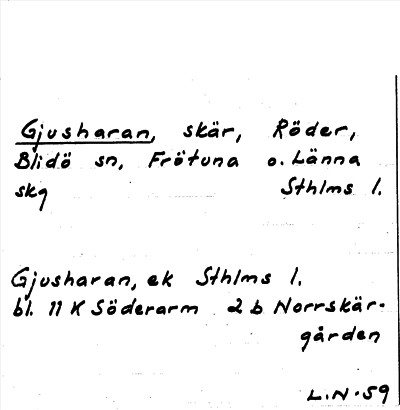 Gjusharan, skär, Röder,
Blidö sn, Frötuna o. Länna
skg Sthlms l.
Gjusharan, ek Sthlms l.
bl. 11 K Söderarm 2 b Norrskär-
gården
L.N. 59